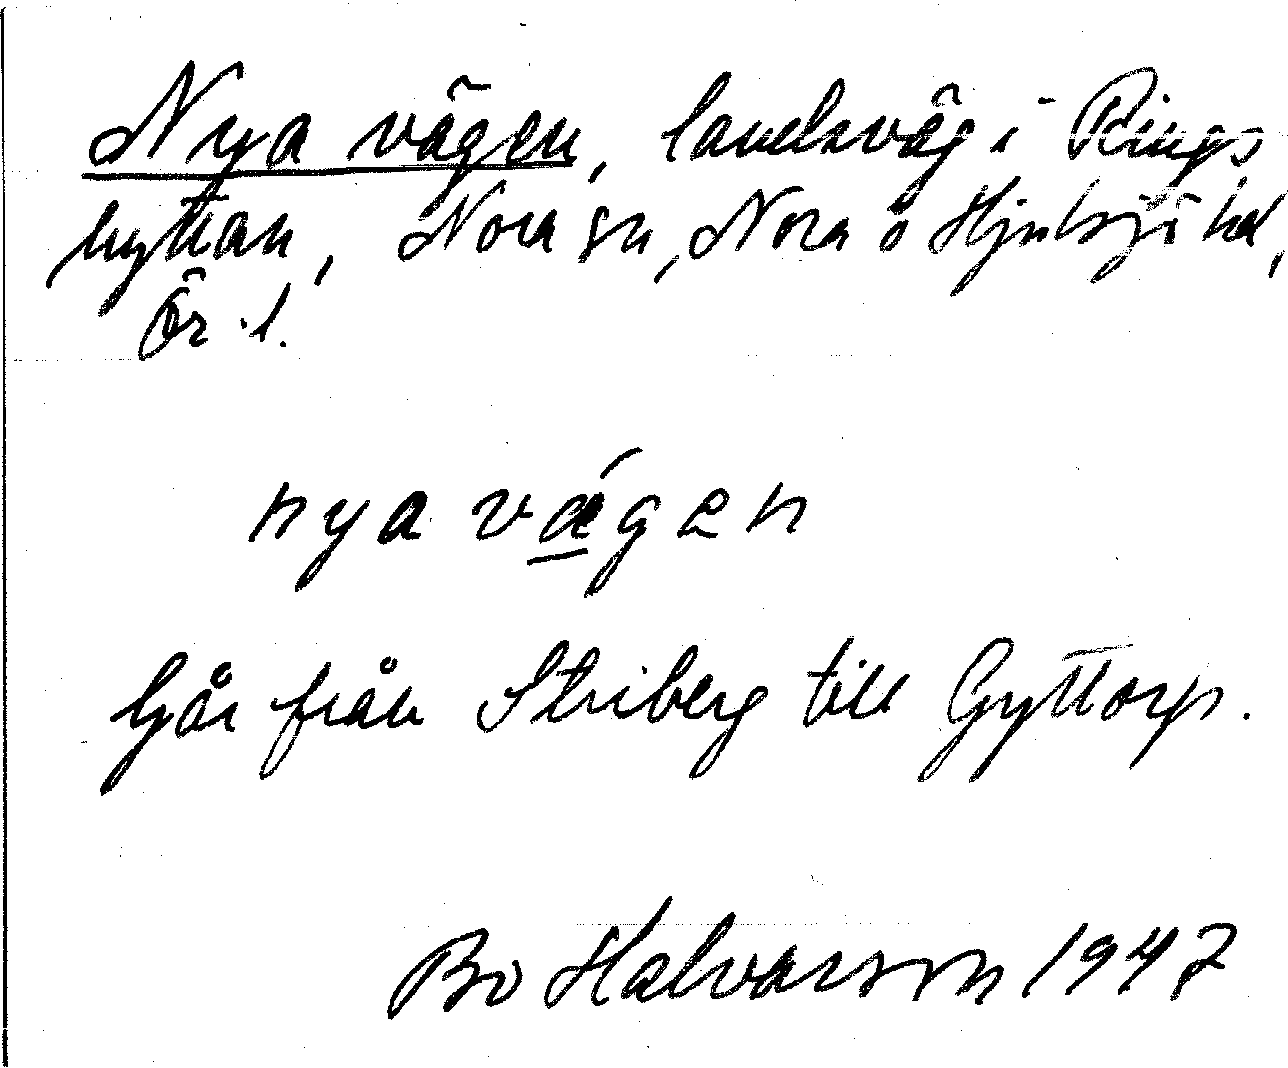 Nya vägen, landsväg i Rings
hyttan, Nora sn, Nora o Hjulsjö hd,
Ör. l.
nya vǽgen
Går från Striberg till Gyttorp.
Bo Halvarson 1947